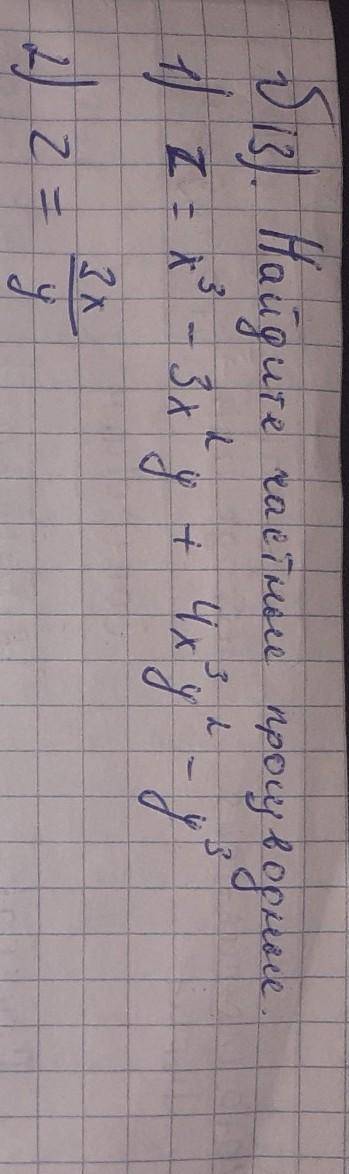 VI 3). Найдите частные производные.
1) z = x³ - 3x²y + 4x³y² - y³
2) z = 3x/y